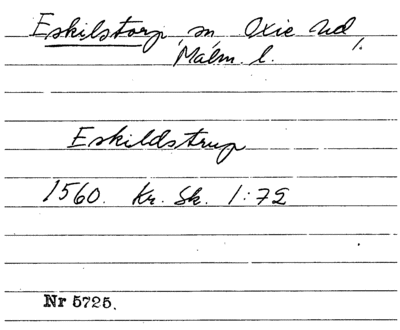 Eskilstorp, sn, Oxie hd,
Malm. l.
Eskildstrup
1560. Kr. Sk. 1:72
Nr 5725.